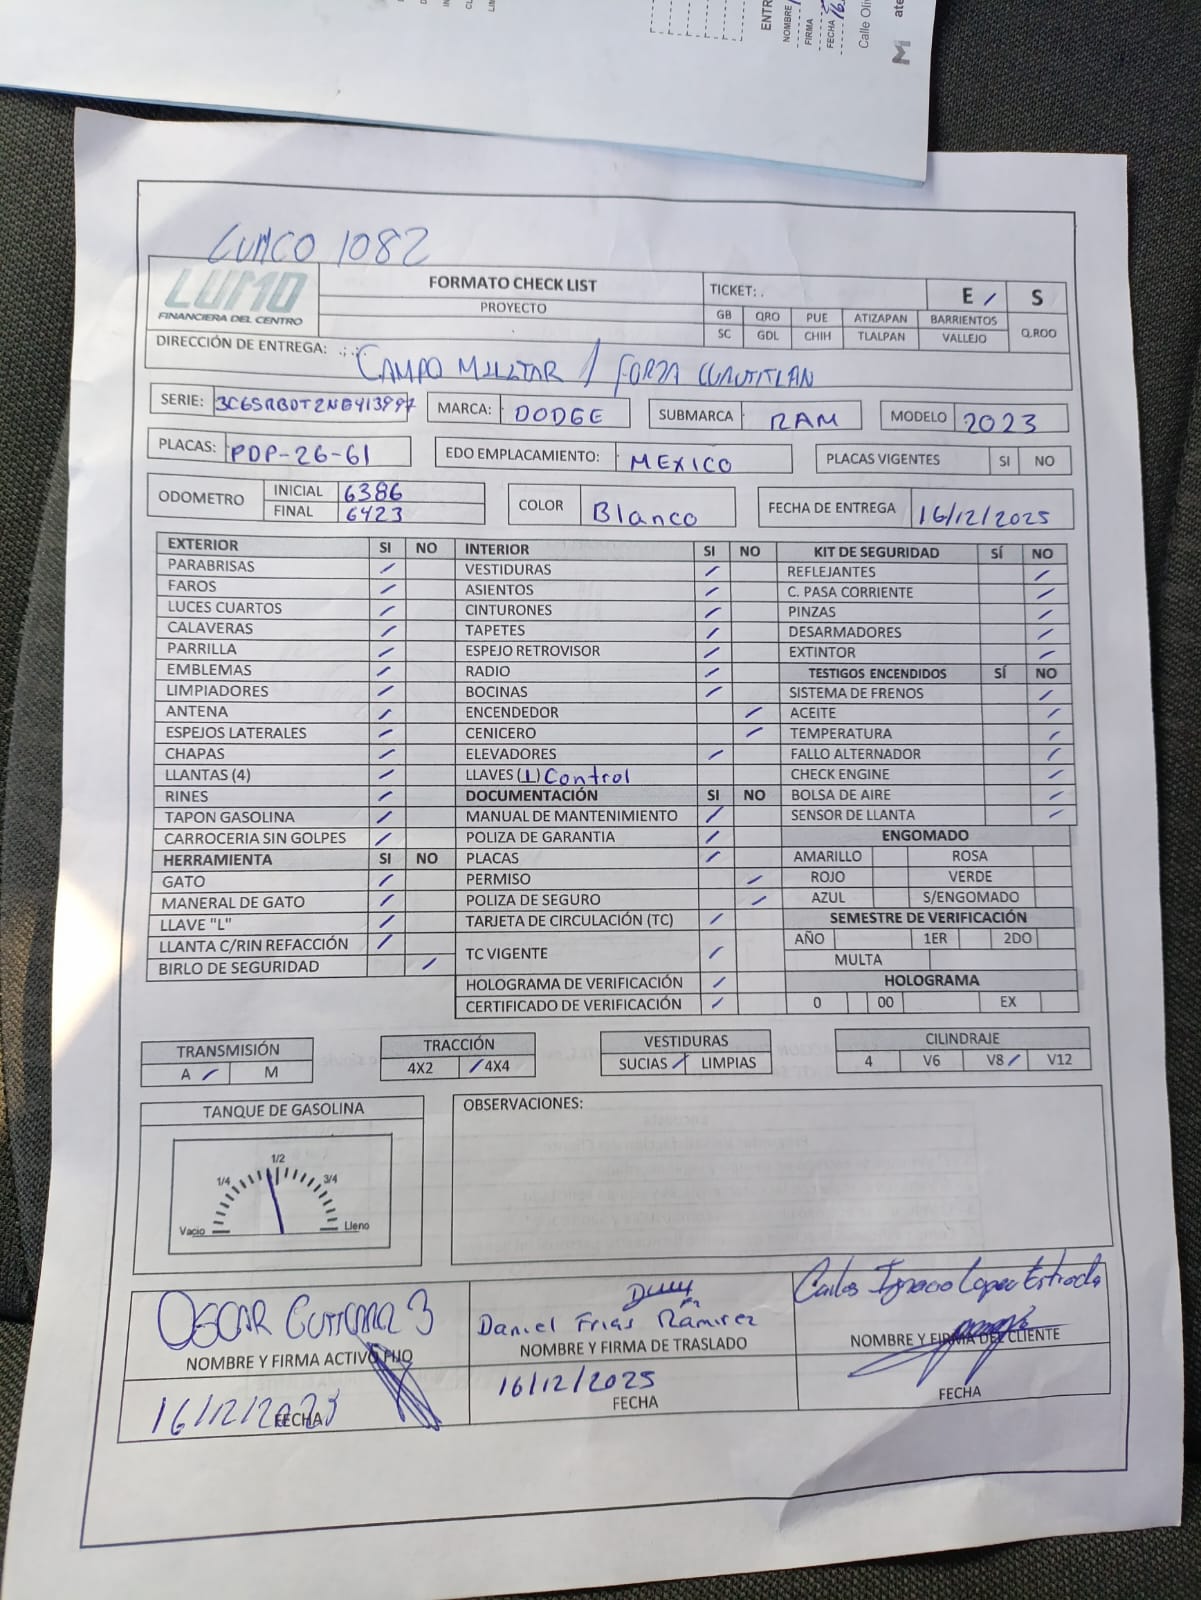 ENTR
NOMBRE
FIRMA
FECHA 16
Calle Oli
M ate
LUMCO 1082
LUMO
FINANCIERA DEL CENTRO
FORMATO CHECK LIST
PROYECTO
TICKET: .
E / S
GB QRO PUE ATIZAPAN BARRIENTOS
SC GDL CHIH TLALPAN VALLEJO Q.ROO
DIRECCIÓN DE ENTREGA: CAMPO MILITAR / FORZA CUAUTITLAN
SERIE: MARCA: DODGE SUBMARCA RAM MODELO 2023
PLACAS: PDP-26-61 EDO EMPLACAMIENTO: MEXICO PLACAS VIGENTES SI NO
ODOMETRO INICIAL 6386 COLOR Blanco FECHA DE ENTREGA 16/12/2025
FINAL 6423
EXTERIOR SI NO INTERIOR SI NO KIT DE SEGURIDAD SÍ NO
PARABRISAS / VESTIDURAS / REFLEJANTES /
FAROS / ASIENTOS / C. PASA CORRIENTE /
LUCES CUARTOS / CINTURONES / PINZAS /
CALAVERAS / TAPETES / DESARMADORES /
PARRILLA / ESPEJO RETROVISOR / EXTINTOR /
EMBLEMAS / RADIO / TESTIGOS ENCENDIDOS SÍ NO
LIMPIADORES / BOCINAS / SISTEMA DE FRENOS /
ANTENA / ENCENDEDOR / ACEITE /
ESPEJOS LATERALES / CENICERO / TEMPERATURA /
CHAPAS / ELEVADORES / FALLO ALTERNADOR /
LLANTAS (4) / LLAVES (1) Control CHECK ENGINE /
RINES / DOCUMENTACIÓN SI NO BOLSA DE AIRE /
TAPON GASOLINA / MANUAL DE MANTENIMIENTO / SENSOR DE LLANTA /
CARROCERIA SIN GOLPES / POLIZA DE GARANTIA / ENGOMADO
HERRAMIENTA SI NO PLACAS / AMARILLO ROSA
GATO / PERMISO / ROJO VERDE
MANERAL DE GATO / POLIZA DE SEGURO / AZUL S/ENGOMADO
LLAVE "L" / TARJETA DE CIRCULACIÓN (TC) / SEMESTRE DE VERIFICACIÓN
LLANTA C/RIN REFACCIÓN / TC VIGENTE / AÑO 1ER 2DO
BIRLO DE SEGURIDAD / MULTA
HOLOGRAMA DE VERIFICACIÓN / HOLOGRAMA
CERTIFICADO DE VERIFICACIÓN / 0 00 EX
TRANSMISIÓN TRACCIÓN VESTIDURAS CILINDRAJE
A / M 4X2 / 4X4 SUCIAS / LIMPIAS 4 V6 V8 / V12
TANQUE DE GASOLINA OBSERVACIONES:
1/2
1/4 3/4
Vacio Lleno
OSCAR
Daniel Frias Ramirez
Carlos Ignacio Lopez Estrada
NOMBRE Y FIRMA ACTIVO FIJO NOMBRE Y FIRMA DE TRASLADO NOMBRE Y FIRMA DEL CLIENTE
16/12/2023 16/12/2025
FECHA FECHA FECHA